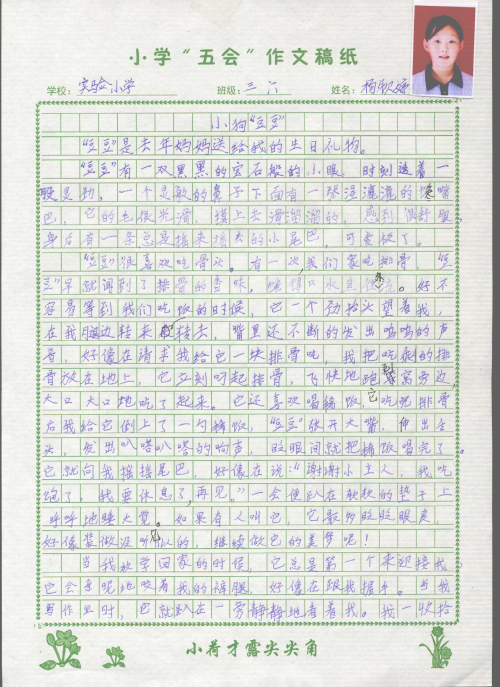 小学“五会”作文稿纸
学校：实验小学 班级：三 六 姓名：杨
小狗“豆豆”
“豆豆”是去年妈妈送给我的生日礼物。
“豆豆”有一双黑黑的宝石般的小眼，时刻透着一
股灵劲，一个灵敏的鼻子下面有一张湿漉漉的嘴
巴，它的毛很光滑，摸上去滑溜溜的，感到很舒服
身后有一条总是摇来摇去的小尾巴，可爱极了。
“豆豆”很喜欢吃骨头。有一次，我们家吃排骨，“豆
豆”早就闻到了排骨的香味，馋得口水直流。好不
容易等到我们吃饭的时候，它一个劲抬头望着我，
在我腿边转来转去，嘴里还不断的发出呜呜的声
音，好像在请求我给它一块排骨吃，我把吃剩的排
骨放在地上，它立刻叼起排骨，飞快地跑到窝旁边，
大口大口地吃了起来。它还喜欢喝稀饭，它吃完排骨
后我给它倒上了一勺稀饭，“豆豆”张开大嘴，伸出舌
头，发出叭嗒叭嗒的响声，眨眼间就把稀饭喝完了
它就向我摇摇尾巴，好像在说：“谢谢小主人，我吃
饱了，我要休息了，再见。”一会便趴在软软的垫子上
呼呼地睡大觉。如果有人叫它，它最多眨眨眼皮，
好像装做没听见似的，继续做它的美梦呢！
当我放学回家的时候，它总是第一个来迎接我，
它会亲昵地咬着我的裤腿，好像在跟我握手。当我
写作业时，它就趴在一旁静静地看着我。我一收拾
小荷才露尖尖角